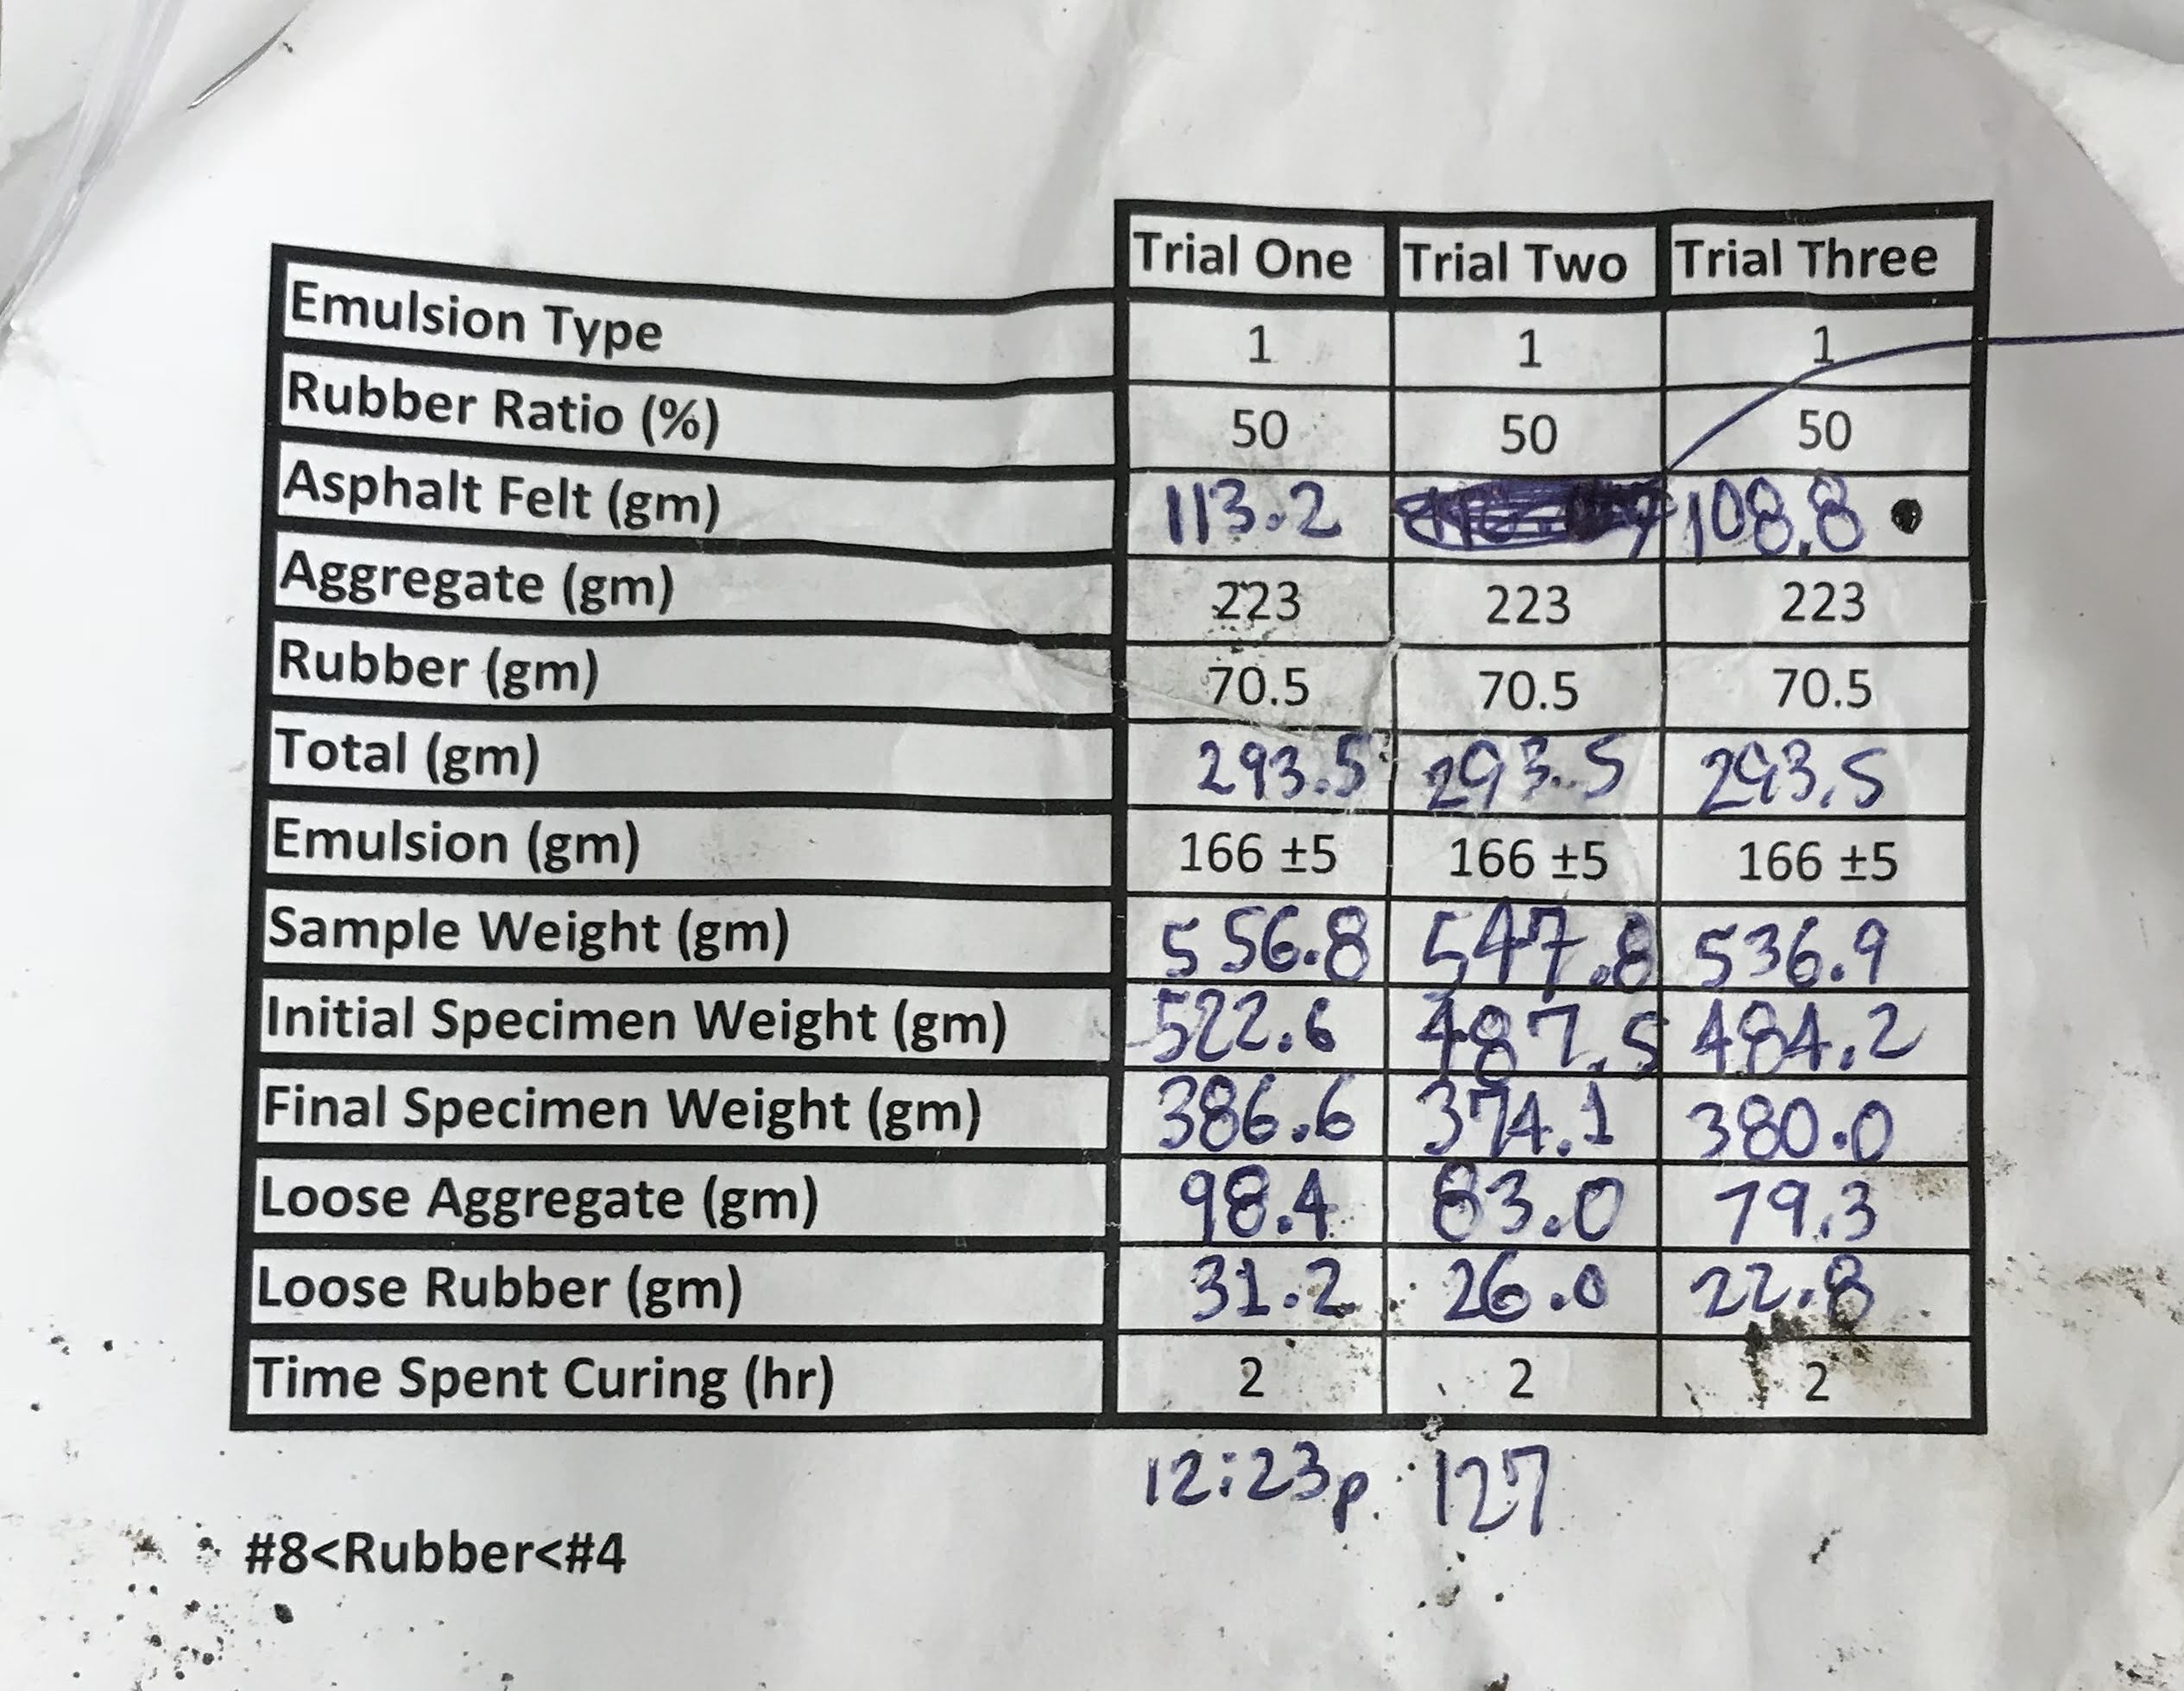 Trial One Trial Two Trial Three
Emulsion Type 1 1 1
Rubber Ratio (%) 50 50 50
Asphalt Felt (gm) 113.2 108.8
Aggregate (gm) 223 223 223
Rubber (gm) 70.5 70.5 70.5
Total (gm) 293.5 293.5 293.5
Emulsion (gm) 166 ±5 166 ±5 166 ±5
Sample Weight (gm) 556.8 547.8 536.9
Initial Specimen Weight (gm) 522.6 487.5 484.2
Final Specimen Weight (gm) 386.6 374.1 380.0
Loose Aggregate (gm) 98.4 83.0 79.3
Loose Rubber (gm) 31.2 26.0 22.8
Time Spent Curing (hr) 2 2 2
12:23p. 127
#8<Rubber<#4